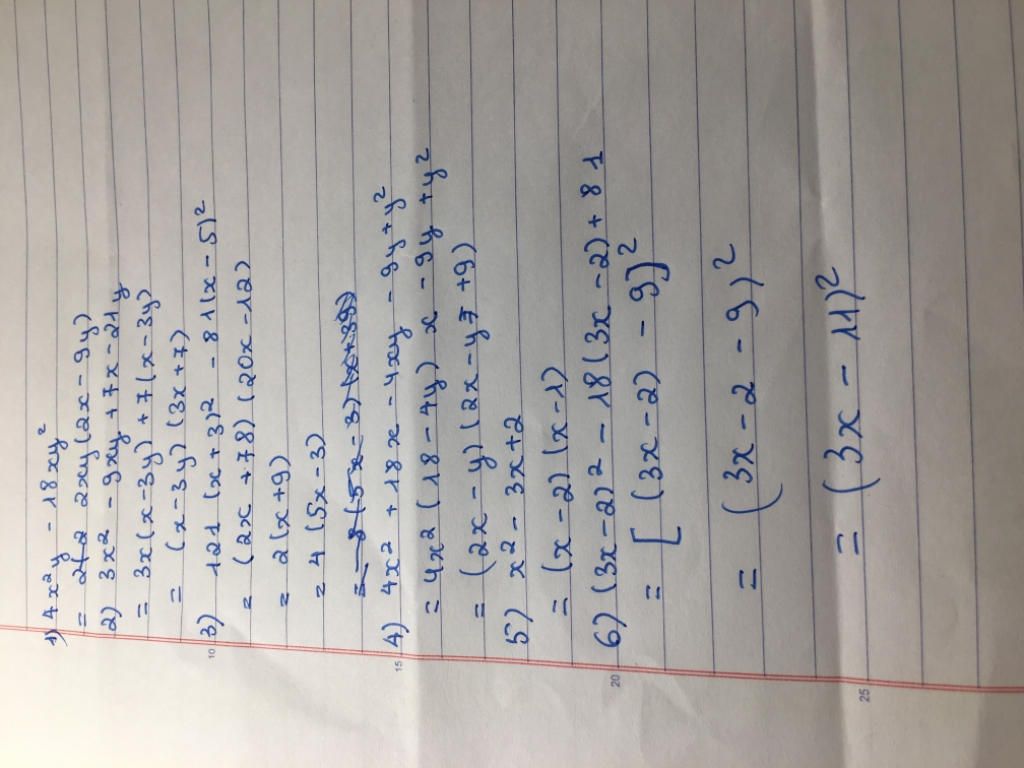 1) 4x²y - 18xy²
= 2xy(2x - 9y)
2) 3x² - 9xy + 7x - 21y
= 3x(x - 3y) + 7(x - 3y)
= (x - 3y) (3x + 7)
3) 121 (x + 3)² - 81(x - 5)²
= (2x + 78) (20x - 12)
= 2(x + 9)
= 4 (5x - 3)
4) 4x² + 18x - 4xy - 9y + y²
= 4x² (18 - 4y) x - 9y + y²
= (2x - y) (2x - y + 9)
5) x² - 3x + 2
= (x - 2) (x - 1)
6) (3x - 2)² - 18 (3x - 2) + 81
= [(3x - 2) - 9]²
= (3x - 2 - 9)²
= (3x - 11)²
10
15
20
25